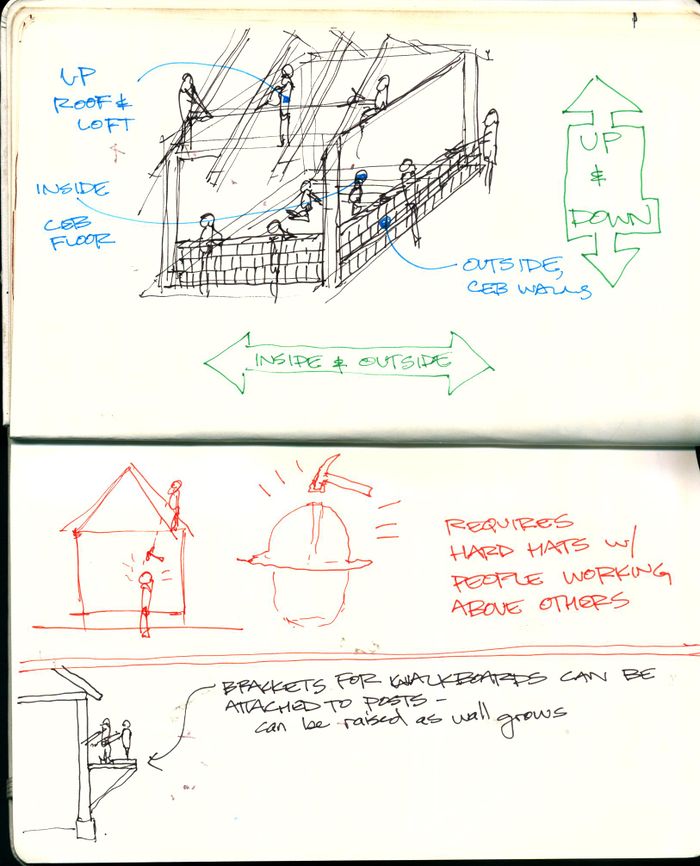 UP
ROOF &
LOFT
INSIDE
CEB
FLOOR
OUTSIDE,
CEB WALLS
UP
&
DOWN
INSIDE & OUTSIDE
REQUIRES
HARD HATS W/
PEOPLE WORKING
ABOVE OTHERS
BRACKETS FOR WALKBOARDS CAN BE
ATTACHED TO POSTS -
can be raised as wall grows